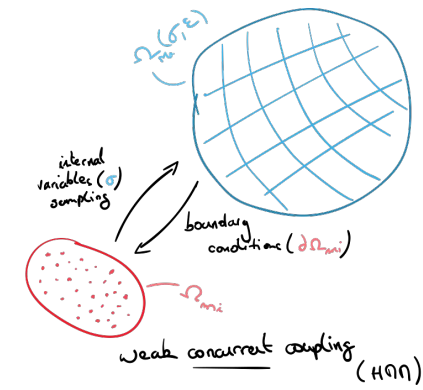 Ω_Ma(σ,ε)
internal
variables (σ)
sampling
boundary
conditions (∂Ω_mi)
Ω_mi
weak concurrent coupling
(HMM)